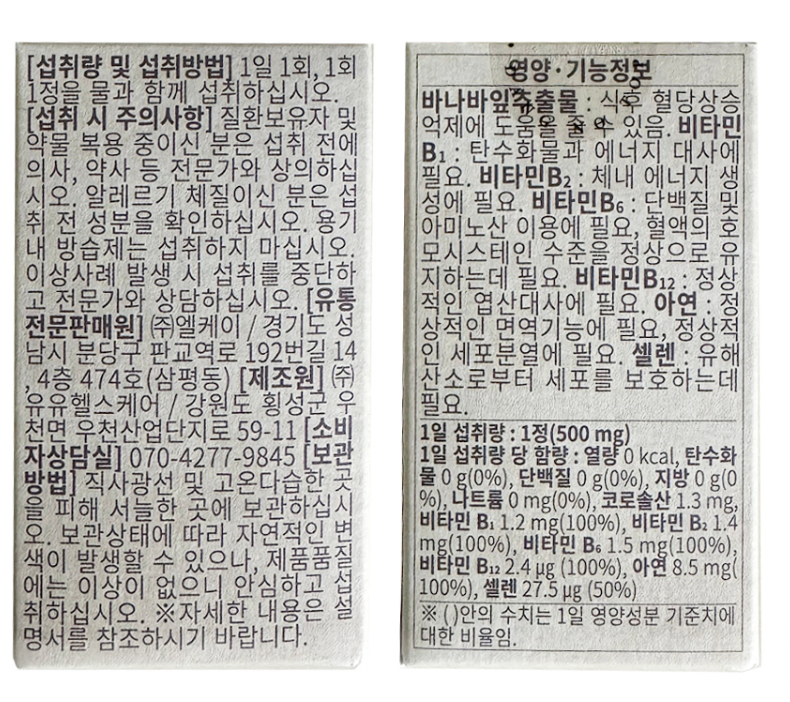 [섭취량 및 섭취방법] 1일 1회, 1회
1정을 물과 함께 섭취하십시오.
[섭취 시 주의사항] 질환보유자 및
약물 복용 중이신 분은 섭취 전에
의사, 약사 등 전문가와 상의하십
시오. 알레르기 체질이신 분은 섭
취 전 성분을 확인하십시오. 용기
내 방습제는 섭취하지 마십시오.
이상사례 발생 시 섭취를 중단하
고 전문가와 상담하십시오. [유통
전문판매원] ㈜엘케이 / 경기도 성
남시 분당구 판교역로 192번길 14
, 4층 474호(삼평동) [제조원] ㈜
유유헬스케어 / 강원도 횡성군 우
천면 우천산업단지로 59-11 [소비
자상담실] 070-4277-9845 [보관
방법] 직사광선 및 고온다습한 곳
을 피해 서늘한 곳에 보관하십시
오. 보관상태에 따라 자연적인 변
색이 발생할 수 있으나, 제품품질
에는 이상이 없으니 안심하고 섭
취하십시오. ※자세한 내용은 설
명서를 참조하시기 바랍니다.
영양·기능정보
바나바잎추출물 : 식후 혈당상승
억제에 도움을 줄 수 있음. 비타민
B₁ : 탄수화물과 에너지 대사에
필요. 비타민B₂ : 체내 에너지 생
성에 필요. 비타민B₆ : 단백질 및
아미노산 이용에 필요, 혈액의 호
모시스테인 수준을 정상으로 유
지하는데 필요. 비타민B₁₂ : 정상
적인 엽산대사에 필요. 아연 : 정
상적인 면역기능에 필요, 정상적
인 세포분열에 필요. 셀렌 : 유해
산소로부터 세포를 보호하는데
필요.
1일 섭취량 : 1정(500 mg)
1일 섭취량 당 함량 : 열량 0 kcal, 탄수화
물 0 g(0%), 단백질 0 g(0%), 지방 0 g(0
%), 나트륨 0 mg(0%), 코로솔산 1.3 mg,
비타민 B₁ 1.2 mg(100%), 비타민 B₂ 1.4
mg(100%), 비타민 B₆ 1.5 mg(100%),
비타민 B₁₂ 2.4 µg (100%), 아연 8.5 mg(
100%), 셀렌 27.5 µg (50%)
※ ( )안의 수치는 1일 영양성분 기준치에
대한 비율임.